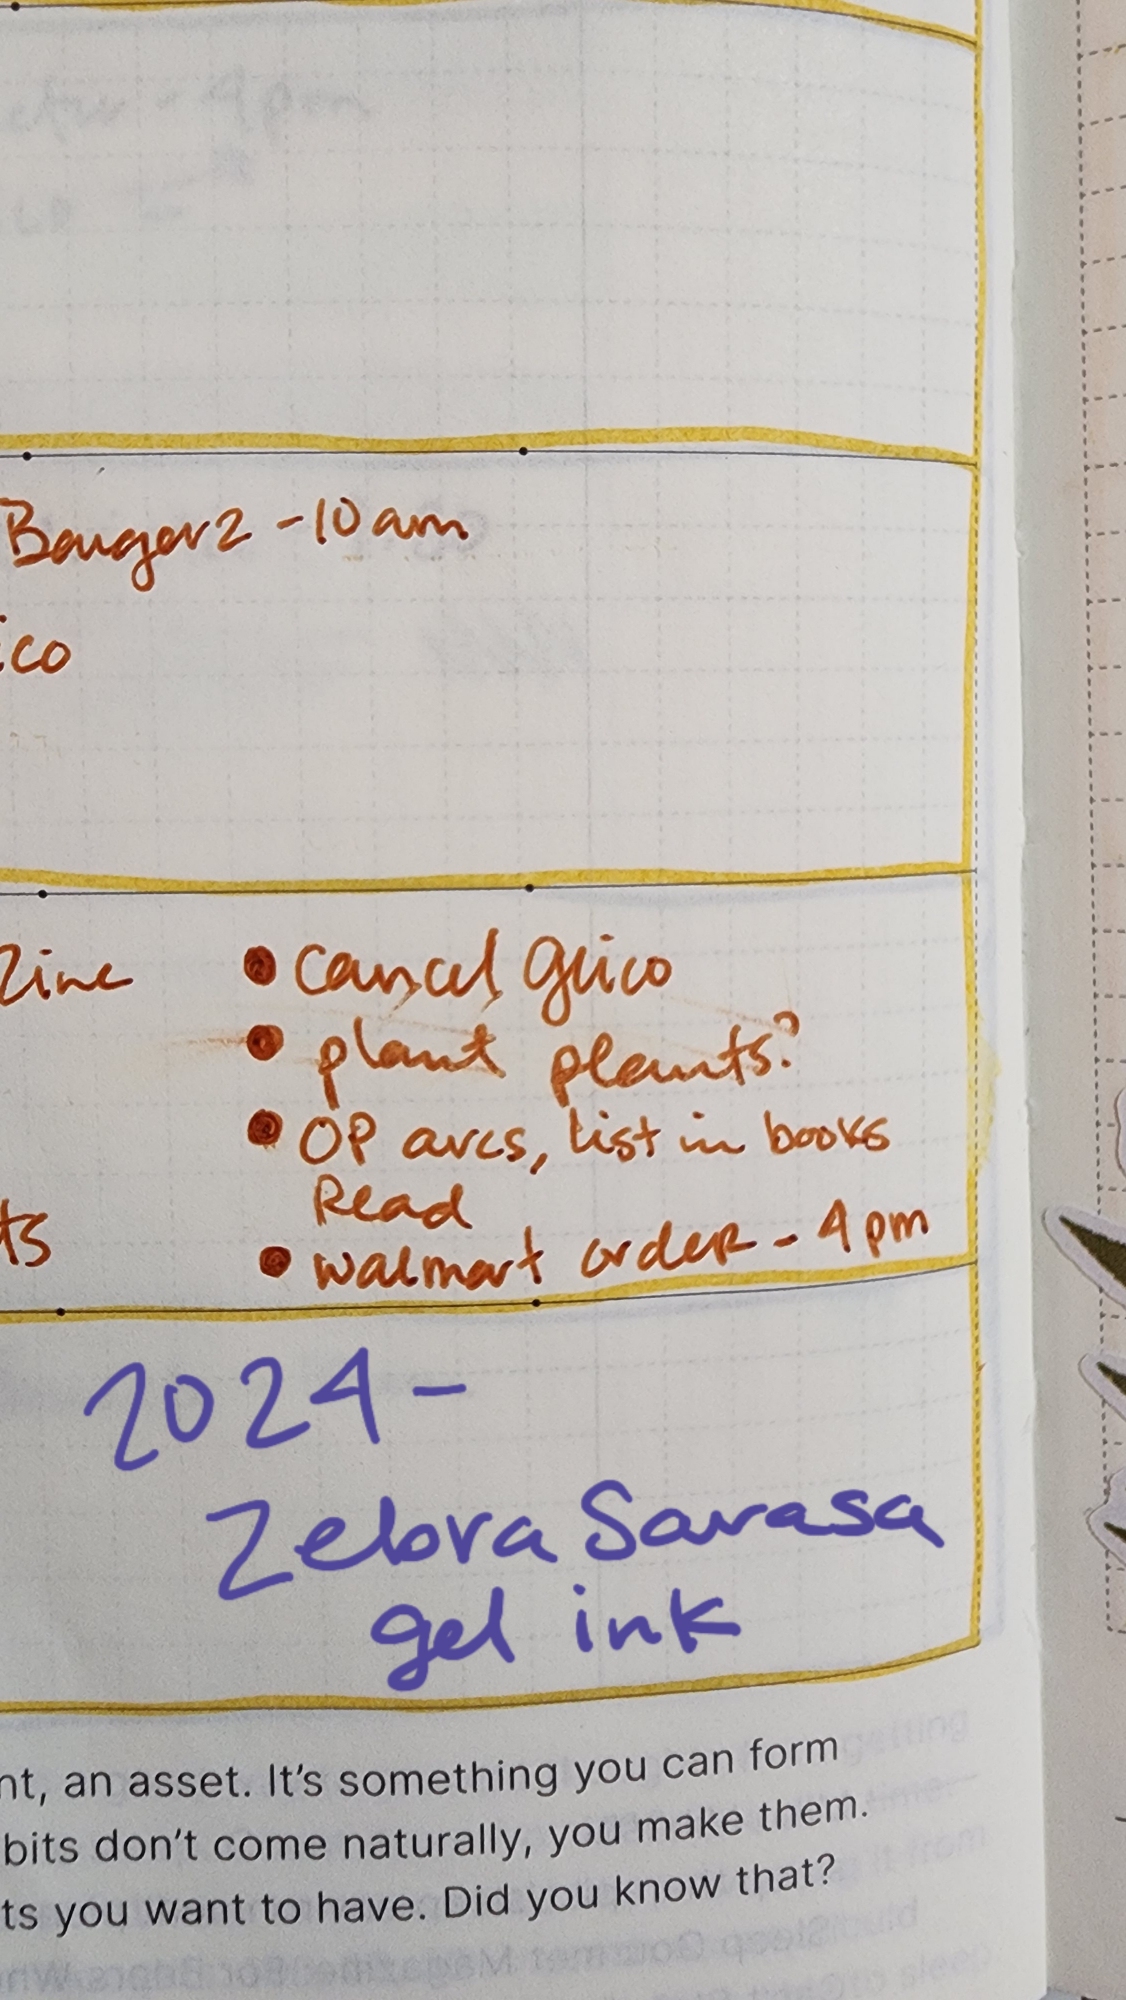 Bangorz - 10am
ico
Zine
• Cancel Geico
• plant plants?
• OP arcs, list in books
Read
ts
• walmart order - 4pm
2024 -
Zebra Sarasa
gel ink
nt, an asset. It's something you can form
bits don't come naturally, you make them.
ts you want to have. Did you know that?